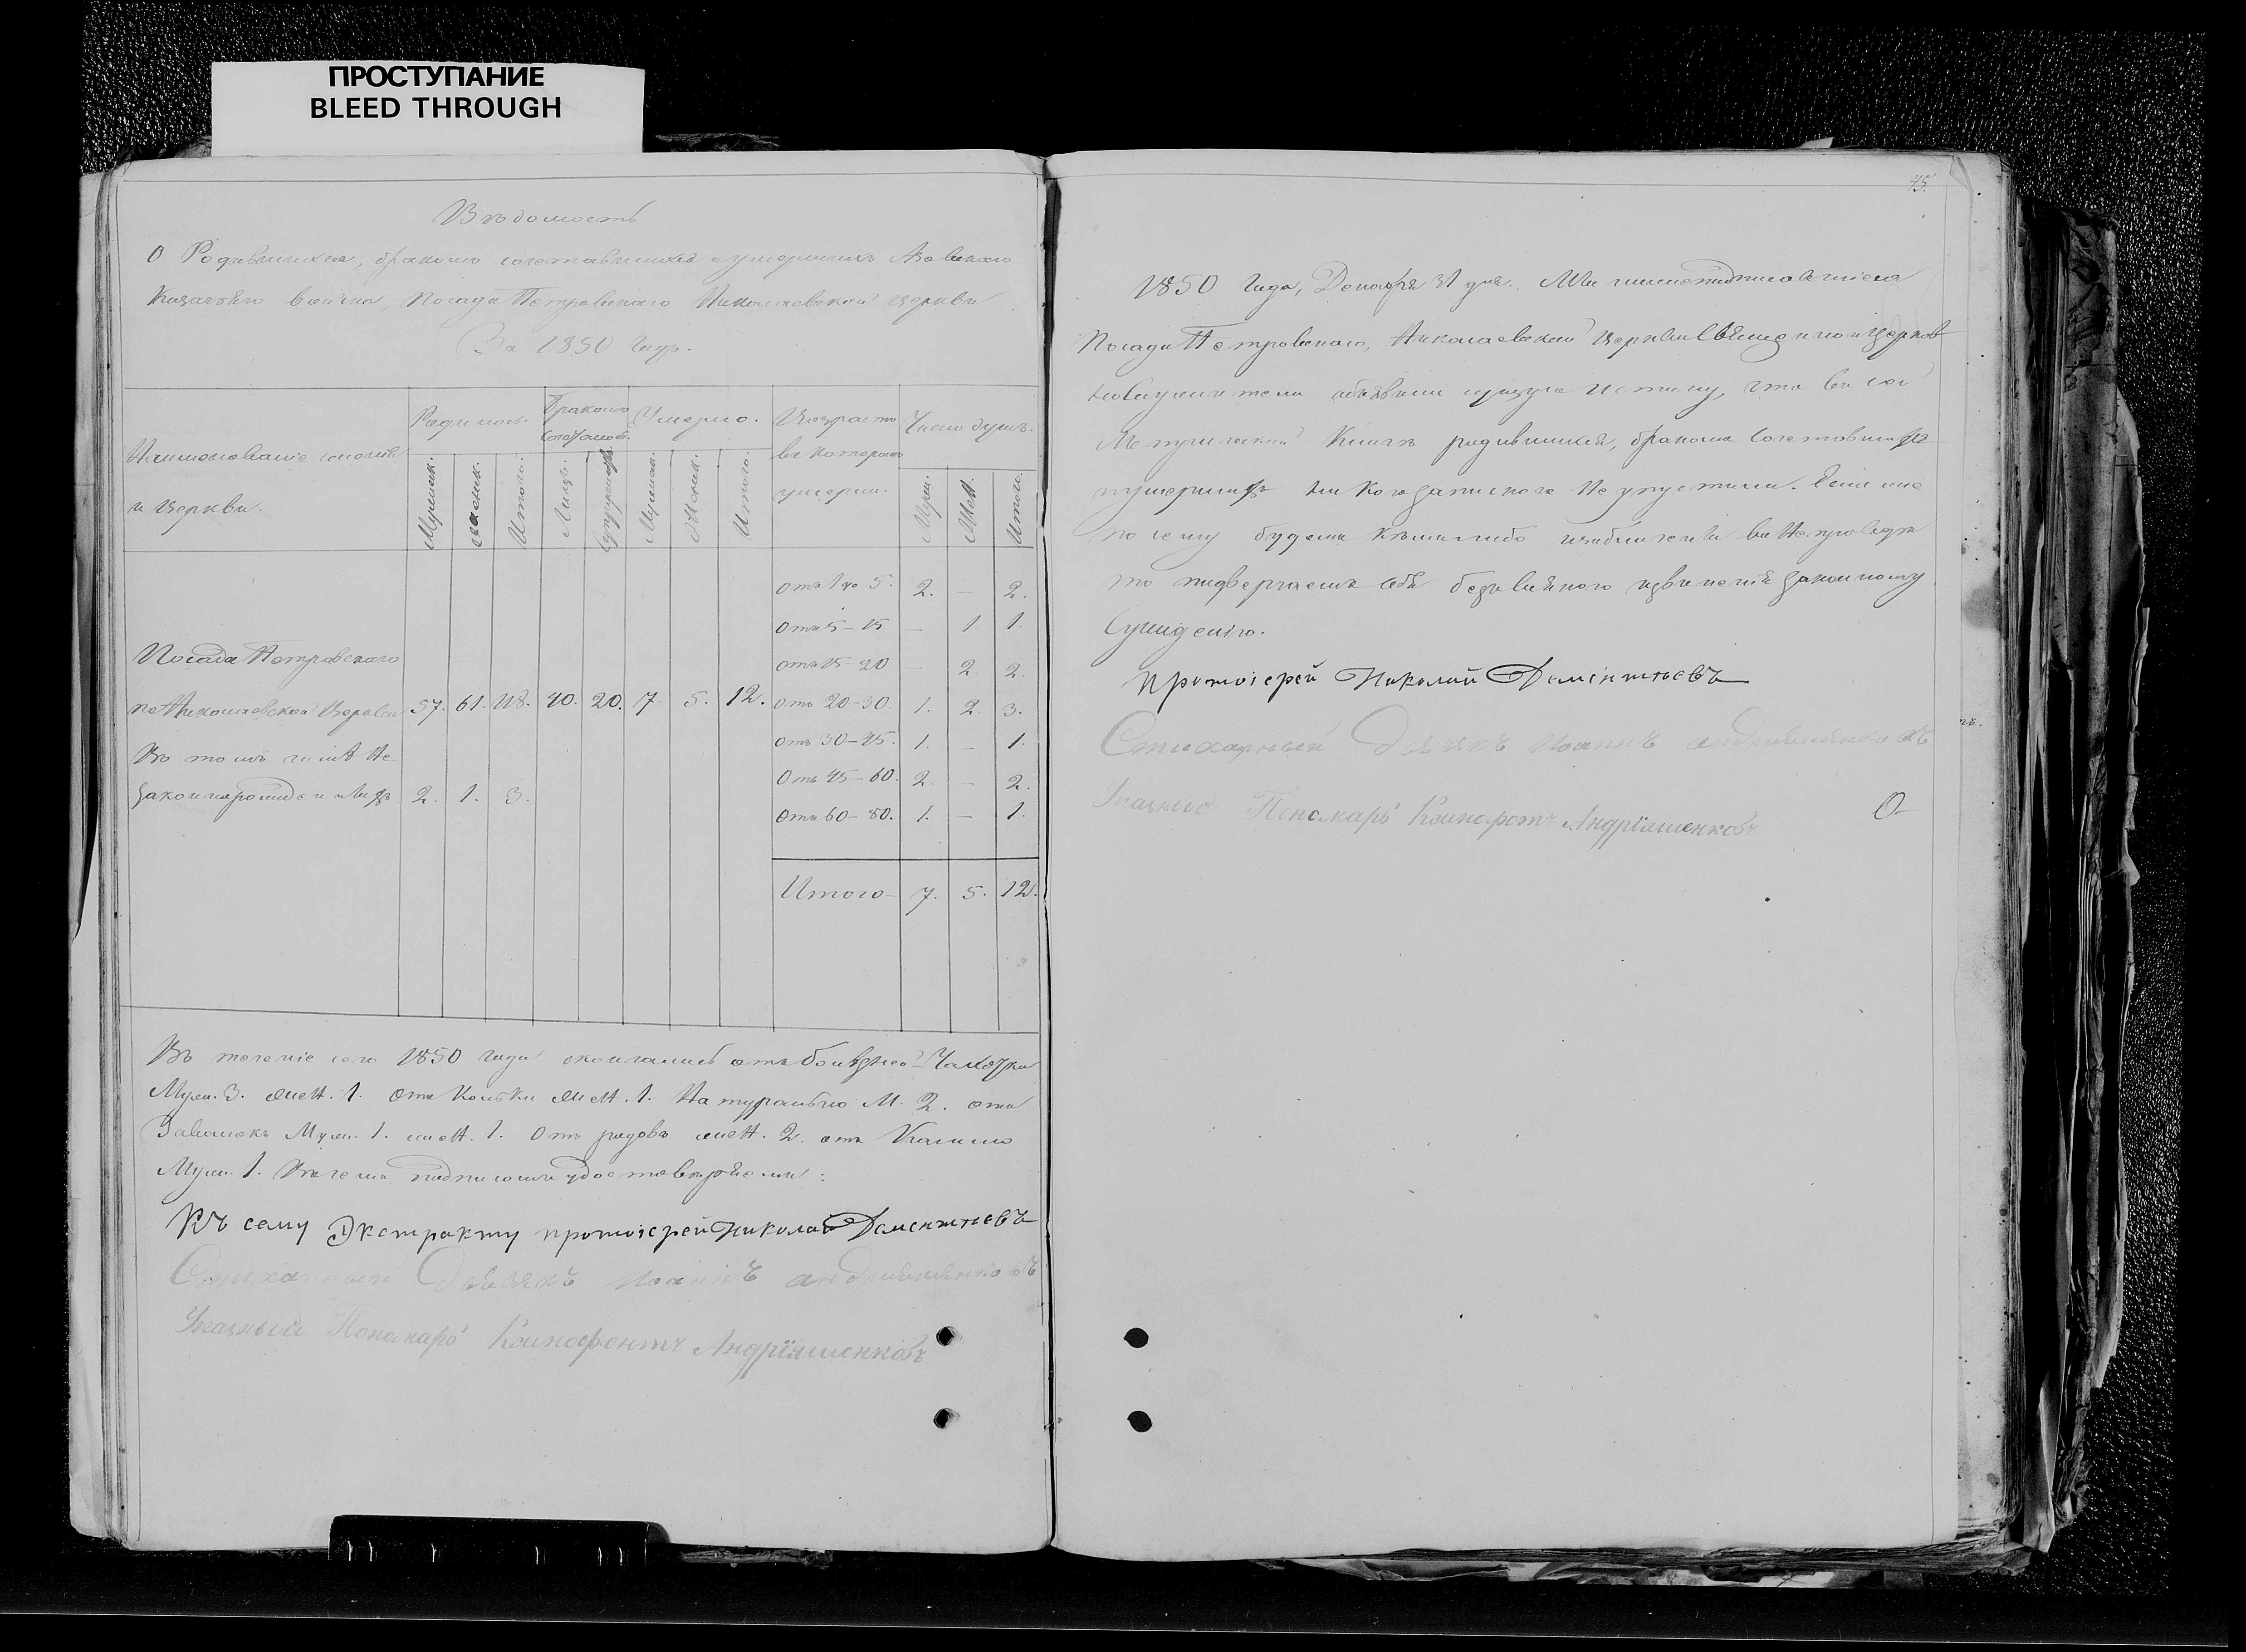 ПРОСТУПАНИЕ
BLEED THROUGH
Вѣдомость
О Родившихся, бракомъ сочетавшихся и умершихъ Азовскаго
Казачьяго войска, Посада Петровскаго Николаевской церкви
За 1850 годъ.
Наименованіе
и Церкви.
Родилось.
Бракомъ
Сочеталось.
Умерло.
Возрастъ
въ которомъ
умерли.
Число душъ.
Мужеск.
Женск.
Итого.
Лицъ.
Супружествъ
Мужеск.
Женск.
Итого.
Муж.
Жен.
Итого.
Посада Петровскаго
по Николаевской Церкви 57. 61. 118. 40. 20. 7. 5. 12.
Въ томъ числѣ не
законнорожденныхъ 2. 1. 3.
отъ 1 до 5. 2. — 2.
отъ 5–15 — 1 1.
отъ 15–20 — 2. 2.
отъ 20–30. 1. 2. 3.
отъ 30–45. 1. — 1.
отъ 45–60. 2. — 2.
отъ 60–80. 1. — 1.
Итого 7. 5. 12.
Въ теченіе сего 1850 года скончались отъ болѣзней Чахотки
Муж. 3. жен. 1. отъ Кольки жен. 1. Натурально М. 2. отъ
Муж. 1. жен. 1. Отъ родовъ жен. 2. отъ Кашлю
Муж. 1. Въ чемъ подписомъ удостовѣряемъ:
Къ сему Экстракту протоіерей Николай Дементьевъ
Стихарный Дьячкъ Іоаннъ
Указный Пономарь Ксенофонтъ Андріяшенковъ
45.
1850 Года, Декабря 31 дня. Мы нижеподписавшіеся
Посада Петровскаго, Николаевской Церкви Священно и Церков
нослужители объявили сущую истину, что въ сей
Метрической Книгѣ родившихся, бракомъ сочетавшихся
и умершихъ ни кого запискою не упустили. Если же
по сему будемъ кѣмъ либо изобличены въ неправдѣ
то подвергаемъ себя безъ всякого извиненія законному
Сужденію.
протоіерей Николай Дементьевъ
Стихарный Дьячкъ Іоаннъ
Указный Пономарь Ксенофонтъ Андріяшенковъ